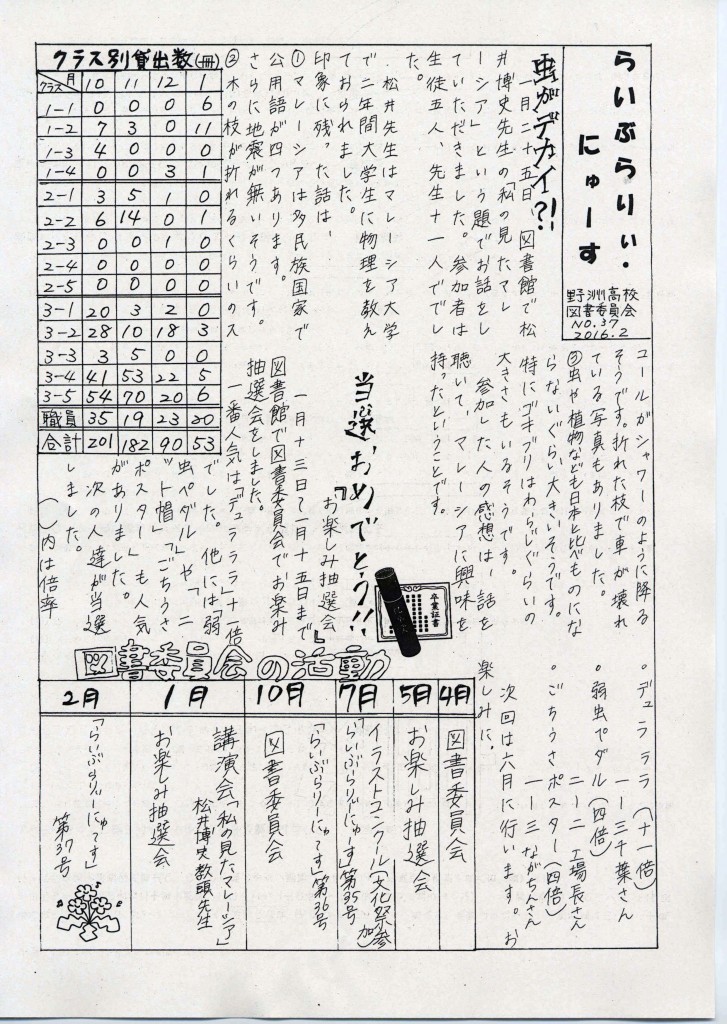 らいぶらりぃ・
にゅーす
野洲高校
図書委員会
NO.37
2016.2
虫がデカイ?!
一月二十五日、図書館で松
井博史先生の「私の見たマレ
ーシア」という題でお話をし
ていただきました。参加者は
生徒五人、先生十一人でし
た。
松井先生はマレーシア大学
で二年間大学生に物理を教え
ておられました。
印象に残った話は、
①マレーシアは多民族国家で
公用語が四つあります。
さらに地震が無いそうです。
②木の枝が折れるくらいのス
コールがシャワーのように降る
そうです。折れた枝で車が壊れ
ている写真もありました。
③虫や植物なども日本と比べものにな
らないぐらい大きいそうです。
特にゴキブリはわらじぐらいの
大きさもいるそうです。
参加した人の感想は、話を
聴いて、マレーシアに興味を
持ったということです。
クラス別貸出数(冊)
クラス 月 10 11 12 1
1-1 0 0 0 6
1-2 7 3 0 11
1-3 4 0 0 0
1-4 0 0 3 1
2-1 3 5 1 0
2-2 6 14 0 1
2-3 0 0 1 0
2-4 0 0 0 0
2-5 0 0 0 0
3-1 20 3 2 0
3-2 28 10 18 3
3-3 3 5 0 0
3-4 41 53 22 5
3-5 54 70 20 6
職員 35 19 23 20
合計 201 182 90 53
当選おめでとう!!
「お楽しみ抽選会」
一月十三日~一月十五日まで
図書館で図書委員会でお楽み
抽選会をしました。
一番人気は「デュラララ」十一倍
でした。他には弱
虫ペダル」や「二
ット帽」「ごちうさ
ポスター」も人気
がありました。
次の人達が当選
しました。
( )内は倍率
卒業証書
。デュラララ(十一倍)
一-三千葉さん
。弱虫ペダル(四倍)
二-二 工場長さん
。ごちうさポスター(四倍)
一-三 ながちんさん
次回は六月に行います。お
楽しみに。
図書委員会の活動
4月
図書委員会
5月
お楽しみ抽選会
7月
イラストコンクール(文化祭参加)
「らいぶらりぃにゅーす」第35号
「らいぶらりーにゅーす」第36号
10月
図書委員会
1月
講演会「私の見たマレーシア」
松井博史教頭先生
お楽しみ抽選会
2月
「らいぶらりーにゅーす」
第37号